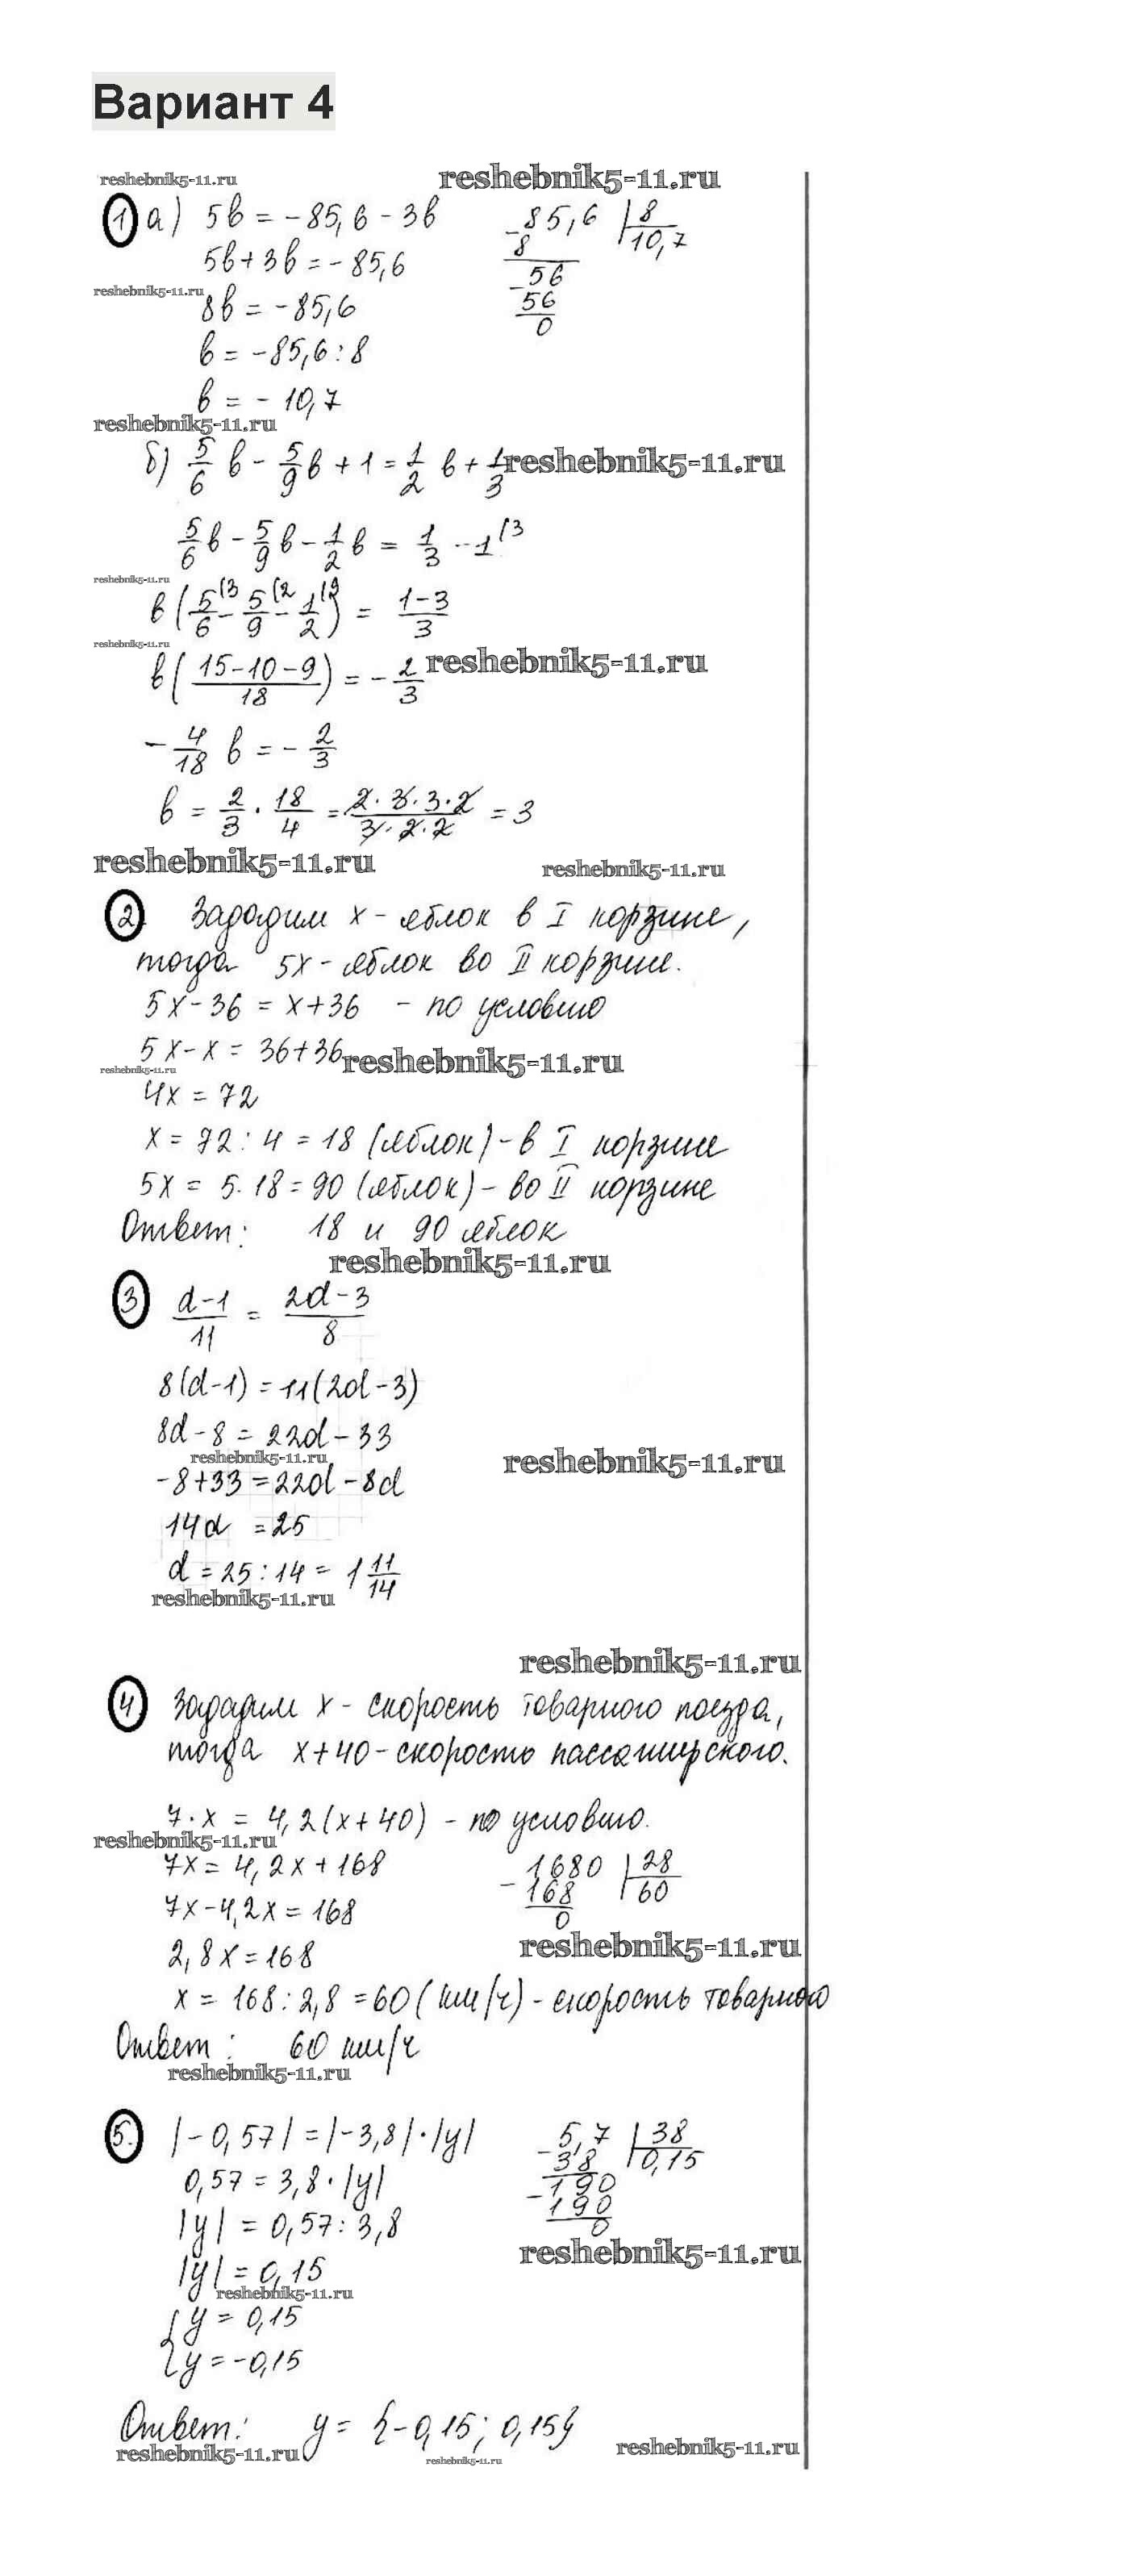 Вариант 4
reshebnik5-11.ru reshebnik5-11.ru
1 а) 5в = -85,6 - 3в
5в+3в = -85,6
reshebnik5-11.ru
8в = -85,6
в = -85,6 : 8
в = - 10,7
-85,6 | 8
8 10,7
-56
56
0
reshebnik5-11.ru
б) 5/6 в - 5/9 в + 1 = 1/2 в + 1/3 reshebnik5-11.ru
5/6 в - 5/9 в - 1/2 в = 1/3 - 1 (3
reshebnik5-11.ru
в (5/6 (3 - 5/9 (2 - 1/2 (9) = 1-3/3
reshebnik5-11.ru
в (15-10-9/18) = - 2/3 reshebnik5-11.ru
- 4/18 в = - 2/3
в = 2/3 · 18/4 = 2·3·3·2/3·2·2 = 3
reshebnik5-11.ru reshebnik5-11.ru
2. Зададим x - яблок в I корзине,
тогда 5x - яблок во II корзине.
5x - 36 = x + 36 - по условию
5x - x = 36+36 reshebnik5-11.ru
reshebnik5-11.ru
4x = 72
x = 72 : 4 = 18 (яблок) - в I корзине
5x = 5·18 = 90 (яблок) - во II корзине
Ответ: 18 и 90 яблок
reshebnik5-11.ru
3 d-1/11 = 2d-3/8
8(d-1) = 11(2d-3)
8d - 8 = 22d - 33
reshebnik5-11.ru reshebnik5-11.ru
-8+33 = 22d - 8d
14d = 25
d = 25 : 14 = 1 11/14
reshebnik5-11.ru
reshebnik5-11.ru
4 Зададим x - скорость товарного поезда,
тогда x+40 - скорость пассажирского.
7·x = 4,2(x+40) - по условию.
reshebnik5-11.ru
7x = 4,2x + 168
7x - 4,2x = 168
-1680 | 28
168 60
0
reshebnik5-11.ru
2,8x = 168
x = 168 : 2,8 = 60 (км/ч) - скорость товарного
Ответ: 60 км/ч
reshebnik5-11.ru
5. |-0,57| = |-3,8|·|y|
0,57 = 3,8·|y|
|y| = 0,57 : 3,8
-5,7 | 38
38 0,15
-190
190
0
reshebnik5-11.ru
|y| = 0,15
reshebnik5-11.ru
{ y = 0,15
y = -0,15
Ответ: y = {-0,15; 0,15}
reshebnik5-11.ru reshebnik5-11.ru reshebnik5-11.ru